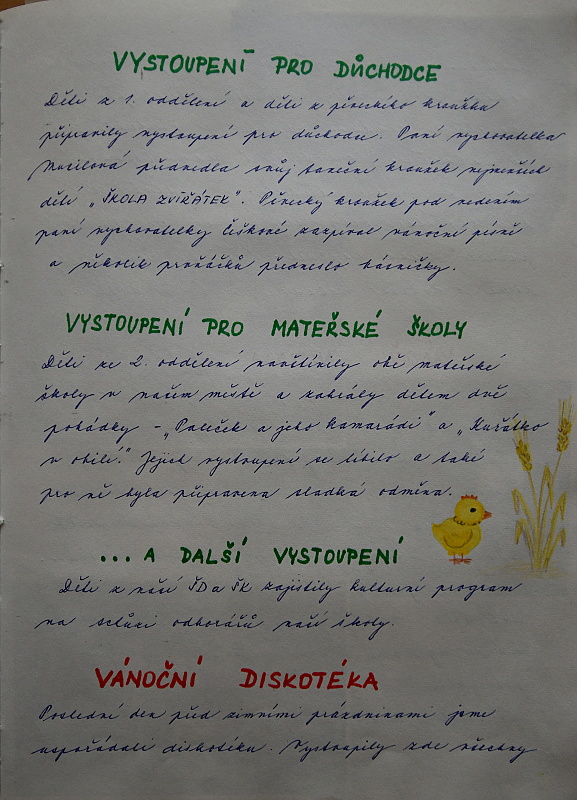 VYSTOUPENÍ PRO DŮCHODCE
Děti z 1. oddělení a děti z pěveckého kroužku
připravily vystoupení pro důchodce. Paní vychovatelka
předvedla svůj taneční kroužek nejmenších
dětí „ŠKOLA ZVÍŘÁTEK". Pěvecký kroužek pod vedením
paní vychovatelky Liškové zazpíval vánoční písně
a několik prvňáčků předneslo básničky.
VYSTOUPENÍ PRO MATEŘSKÉ ŠKOLY
Děti ze 2. oddělení navštívily obě mateřské
školy v našem městě a zahrály dětem dvě
pohádky - „Paleček a jeho kamarádi" a „Kuřátko
v obilí." Jejich vystoupení se líbilo a také
pro ně byla připravena sladká odměna.
... A DALŠÍ VYSTOUPENÍ
Děti z naší ŠD a ŠK zajistily kulturní program
na schůzi odborářů naší školy.
VÁNOČNÍ DISKOTÉKA
Poslední den před zimními prázdninami jsme
uspořádali diskotéku. Vystoupily zde všechny